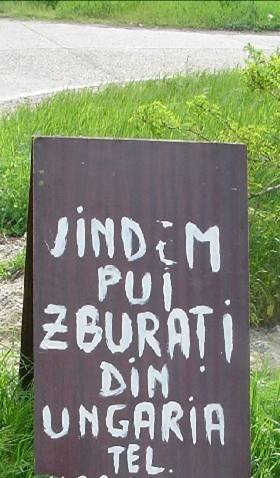 VINDEM
PUI
ZBURAȚI
DIN
UNGARIA
TEL.